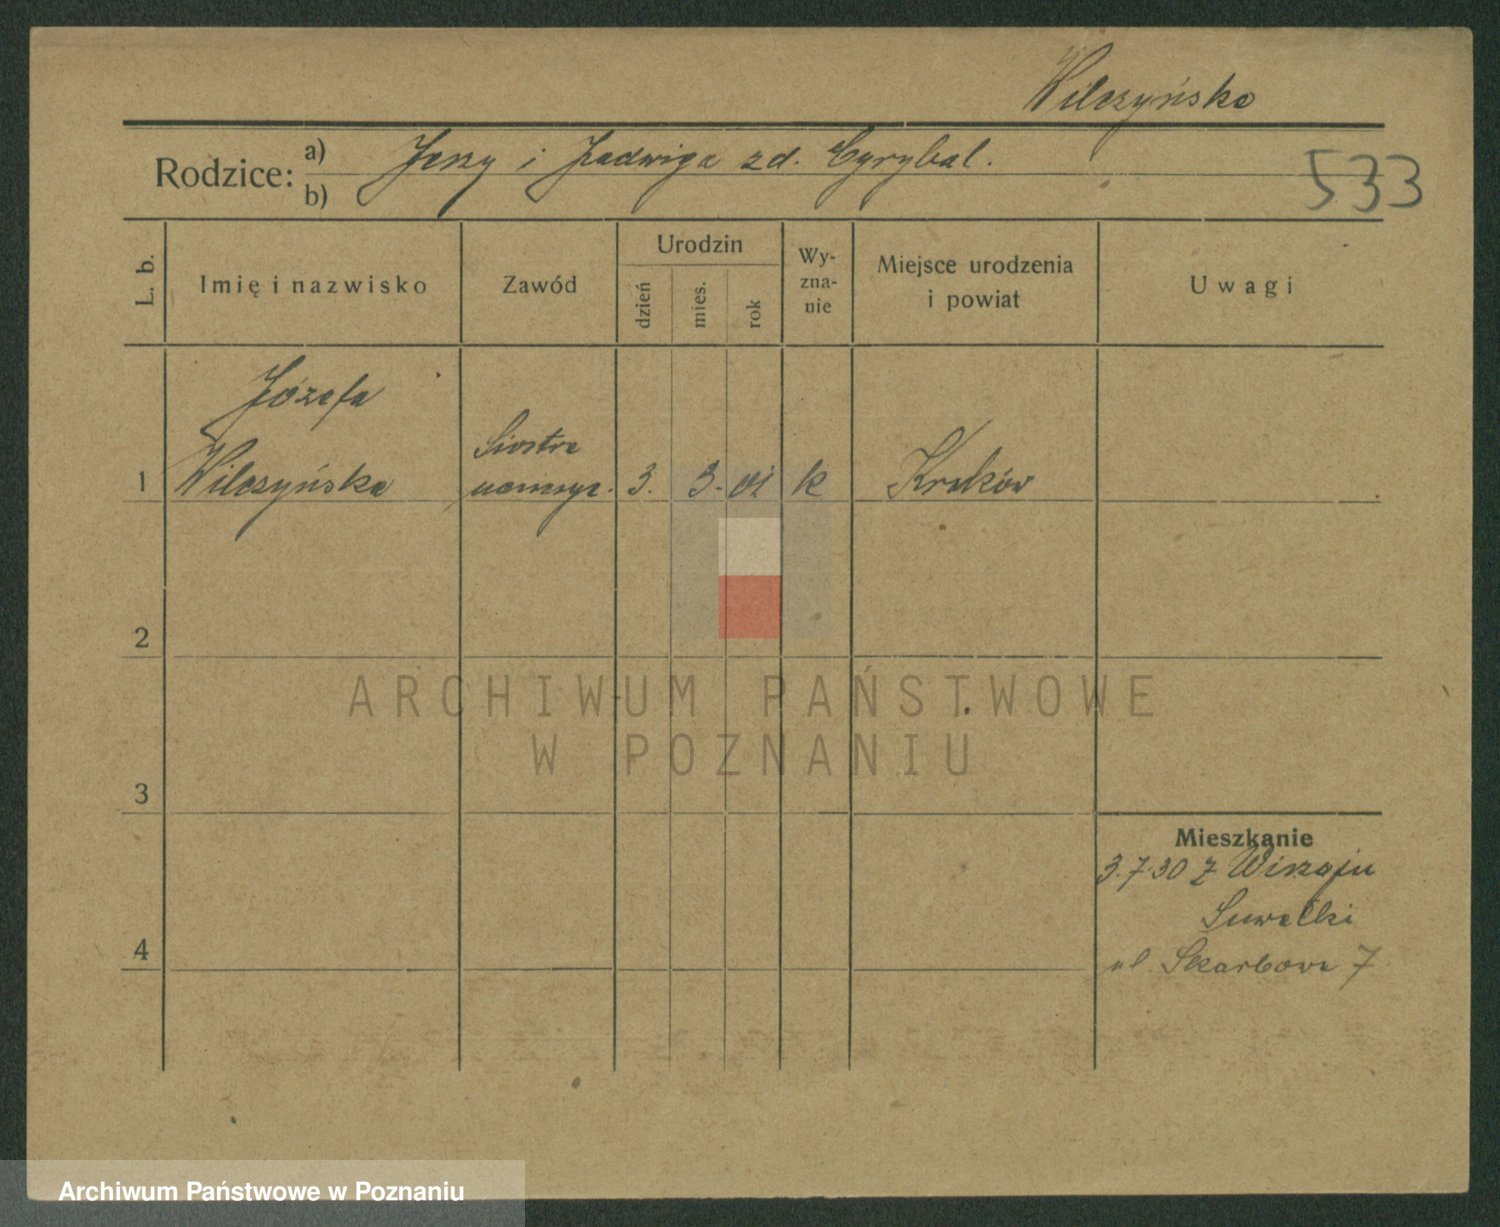 Wilczyńska
Rodzice:
a) Jerzy i Jadwiga zd. Cyrybal.
b)
533
L. b.
Imię i nazwisko
Zawód
Urodzin
dzień
mies.
rok
Wy-
zna-
nie
Miejsce urodzenia
i powiat
Uwagi
Józefa
Siostra
1 Wilczyńska 3. 3. 01 k Kraków
2
ARCHIWUM PAŃSTWOWE
W POZNANIU
3
Mieszkanie
3.7.30 z Wiżaju
Suwałki
4
ul. Skarbowa 7
Archiwum Państwowe w Poznaniu